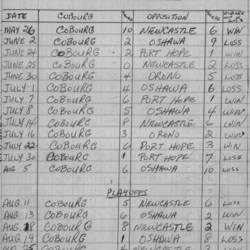 DATE COBOURG OPPOSITION
MAY 26 COBOURG 10 NEWCASTLE 6 WIN
JUNE 2 COBOURG 2 OSHAWA 9 LOSS
JUNE 24 COBOURG 2 PORT HOPE 1 WIN
JUNE 25 COBOURG 2 NEWCASTLE 2
JUNE 30 COBOURG 4 ORONO 5 LOSS
JULY 1 COBOURG 4 OSHAWA 6 LOSS
JULY 7 COBOURG 7 PORT HOPE 1 WIN
JULY 8 COBOURG 5 OSHAWA 4 WIN
JULY 14 COBOURG 8 NEWCASTLE 6 WIN
JULY 16 COBOURG 3 ORONO 2 WIN
JULY 22 COBOURG 6 PORT HOPE 3 WIN
JULY 30 COBOURG 1 PORT HOPE 7 LOSS
AUG 5 COBOURG 6 OSHAWA 10 LOSS
PLAYOFFS
AUG 11 COBOURG 5 NEWCASTLE 6 LOSS
AUG 13 COBOURG 6 OSHAWA 2 WIN
AUG 18 COBOURG 8 NEWCASTLE 2 WIN
AUG 19 COBOURG 1 OSHAWA LOSS